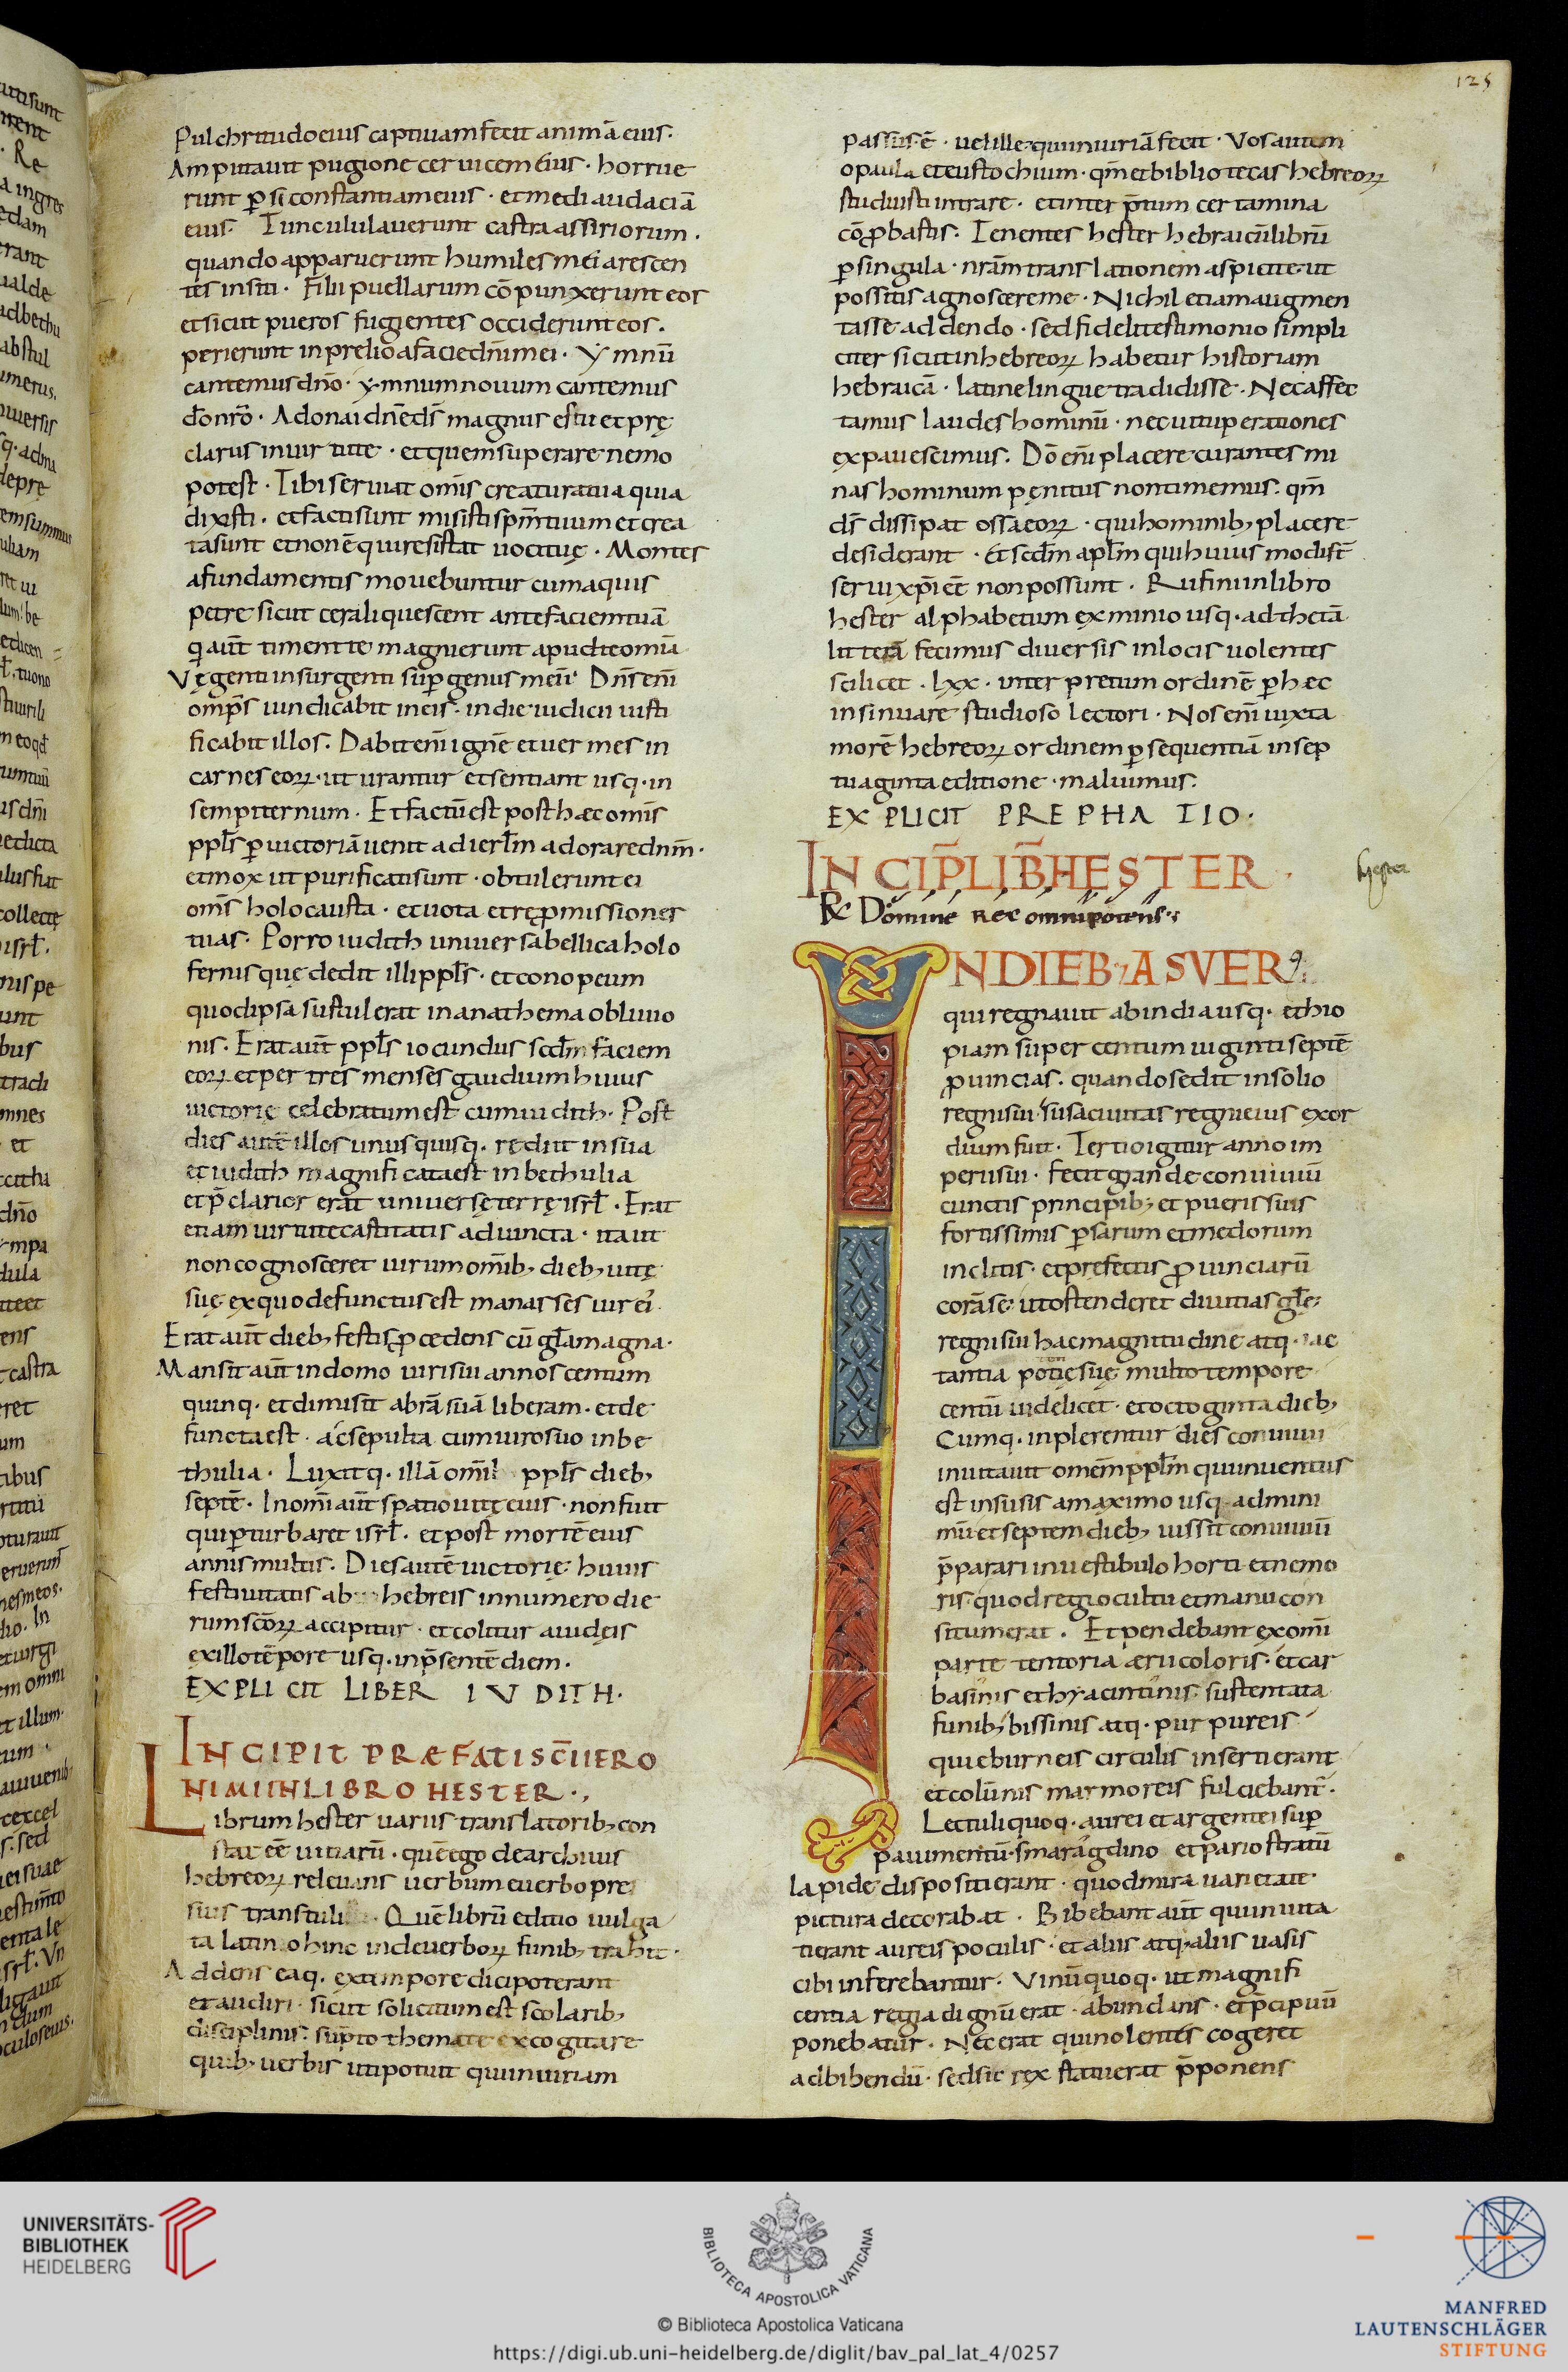 125
Pulchritudo eius captiuam fecit animā eius·
Amputauit pugione ceruicem eius· horrue
runt p̱si constantiam eius· et medi audaciā
eius· Tunc ululauerunt castra assiriorum·
quando apparuerunt humiles mei arescen
tes in siti· Filii puellarum cōpunxerunt eos
et sicut pueros fugientes occiderunt eos·
perierunt in prelio a facie dn̄i mei· Ymnū
cantemus dn̄o· ymnum nouum cantemus
d̄o nr̄o· Adonai dn̄e ds̄ magnus es tu et pre̜
clarus in uirtute· et quem superare nemo
potest· Tibi seruiat omīs creatura tua quia
dixisti· et facti sunt misisti spm̄ tuum et crea
ta sunt et non ē qui resistat uoci tue̜· Montes
a fundamentis mouebuntur cum aquis
petre sicut cera liquescent ante faciem tuā
qi aūt timent te magni erunt apud te omīa
Ve̜ genti insurgenti suꝑ genus meū· Dn̄s enī
omp̄s uindicabit in eis· in die iudicii uisti
ficabit illos· Dabit enī ignē et uermes in
carnes eoꝝ· ut urantur et sentiant usq· in
sempiternum· Et factū est post haec omīs
ppl̄s ꝑ uictoriā uenit ad ierl̄m adorare dnm̄·
et mox ut purificati sunt· obtulerunt ei
omīs holocausta· et uota et re̜ꝓmissiones
tuas· Porro iudith uniuersa bellica holo
fernis que̜ dedit illi ppl̄s· et conopeum
quod ipsa sustulerat in anathema obliuio
nis· Erat aūt ppl̄s iocundus scd̄m faciem
eoꝝ et per tres menses gaudium huius
uictorie̜ celebratum est cum iudith· Post
dies autē illos unusquisq· rediit in sua
et iudith magnificata est in bethulia
et p̄clarior erat uniuerse̜ terre̜ isrl̄· Erat
etiam uirtute castitatis adiuncta· ita ut
non cognosceret uirum omīb; dieb; uite̜
sue̜ ex quo defunctus est manasses uir ei·
Erat aūt dieb; festis ꝓcedens cū gl̄a magna·
Mansit aūt in domo uiri sui annos centum
quinq· et dimisit abrā suā liberam· et de
functa est· ac sepulta cum uiro suo in be
thulia· Luxitq· illā omīs ppl̄s dieb;
septē· In omī aūt spatio uite̜ eius· non fuit
qui ꝑturbaret isrl̄· et post mortē eius
annis multis· Dies autē uictorie̜ huius
festiuitatis ab hebreis in numero die
rum scōꝝ accipitur· et colitur a iude̜is
ex illo tēpore usq· in p̄sentē diem·
EXPLICIT LIBER IUDITH·
INCIPIT PRÆFATI SC̄I IERO
NIMI IN LIBRO HESTER·,
Librum hester uariis translatorib; con
stat eē uitiarū· quē ego de archiuis
hebreoꝝ releuans uerbum e uerbo pre
sius transtuli· Quē librū editio uulga
ta latin o hinc inde uerboꝝ funib; trahit·
Addens eaq· ex tempore dici poterant
et audiri· sicut solicitum est scolarib;
disciplinis· sūpto themate excogitare
quib; uerbis uti potuit qui iniuriam
passus ē· uel ille qui iniuriā fecit· Vos autem
o paula et eustochium· qm̄ et bibliotecas hebreoꝝ
studuisti intrare· et inter p̄tum certamina
cōꝓbastis· Tenentes hester hebraicū librū
ꝑ singula· nrām translationem aspicite· ut
possitis agnoscere me· Nichil etiam augmen
tasse addendo· sed fideli testimonio simpli
citer sicut in hebreoꝝ habetur historiam
hebraicā· latine lingue tradidisse· Nec affec
tamus laudes hominū· nec uituperationes
expauescimus· Dō enī placere curantes mi
nas hominum pe̜nitus non timemus· qm̄
ds̄ dissipat ossa eoꝝ· qui hominib; placere
desiderant· Et scd̄m apl̄m qui huius modi st̄
serui xp̄i eē non possunt· Rufinum libro
hester alphabetum ex minio usq· ad thetā
litterā fecimus diuersis in locis uolentes
scilicet· lxx· interpretum ordinē ꝑ haec
insinuare studioso lectori· Nos enī iuxta
morē hebreoꝝ ordinem ꝑsequentiā in sep
tuaginta editione· maluimus·
EXPLICIT PREPHATIO·
INCIP̄ LIB̄ HESTER·
hester
R Domine rex omnipotens·:
INDIEB; ASVERꝰ
qui regnauit ab india usq· ethio
piam super centum uiginti septē
ꝓuincias· quando sedit in solio
regni sui susa ciuitas regni eius exor
dium fuit· Tertio igitur anno im
perii sui· fecit grande conuiuiū
cunctis principib; et pueris suis
fortissimis ꝑsarum et medorum
inclitis· et prefectis ꝓuinciarū
corā se· ut ostenderet diuitias gl̄e
regni sui hac magnitudine atq· iac
tantia potie̜ sue̜ multo tempore
centū uidelicet· et octoginta dieb;
Cumq· inplerentur dies conuiuii
inuitauit omem ppl̄m qui inuentus
est in susis a maximo usq· ad mini
mū et septem dieb; iussit conuiuiū
p̄parari in uestibulo horti et nemo
ris· quod regio cultu et manu con
situm erat· Et pendebant ex omī
parte tentoria aerii coloris· et car
basinis et hyacintinis sustentata
funib; bissinis atq· purpureis
qui eburneis circulis inserti erant
et colūnis marmoreis fulciebant·
Lectuli quoq· aurei et argentei suꝑ
pauimentū· smaragdino et pario stratū
lapide dispositi erant· quod mira uarietate
pictura decorabat· Bibebant aūt qui inuita
ti erant aureis poculis· et aliis atq; aliis uasis
cibi inferebantur· Vinū quoq· ut magnifi
centia regia dignū erat· abundans· et p̄cipuū
ponebatur· Nec erat qui nolentes cogeret
ad bibendū· sed sic rex statuerat p̄ponens
UNIVERSITÄTS-
BIBLIOTHEK
HEIDELBERG
BIBLIOTECA APOSTOLICA VATICANA
© Biblioteca Apostolica Vaticana
https://digi.ub.uni-heidelberg.de/diglit/bav_pal_lat_4/0257
MANFRED
LAUTENSCHLÄGER
STIFTUNG